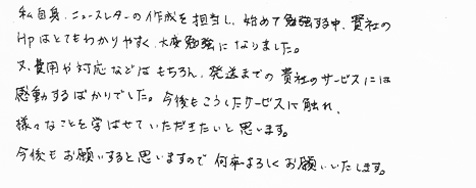 私自身、ニュースレターの作成を担当し、始めて勉強する中、貴社の
Hpはとてもわかりやすく、大変勉強になりました。
又、費用や対応などはもちろん、発送までの貴社のサービスには
感動するばかりでした。今後もこうしたサービスに触れ、
様々なことを学ばせていただきたいと思います。
今後もお願いすると思いますので何卒よろしくお願いいたします。